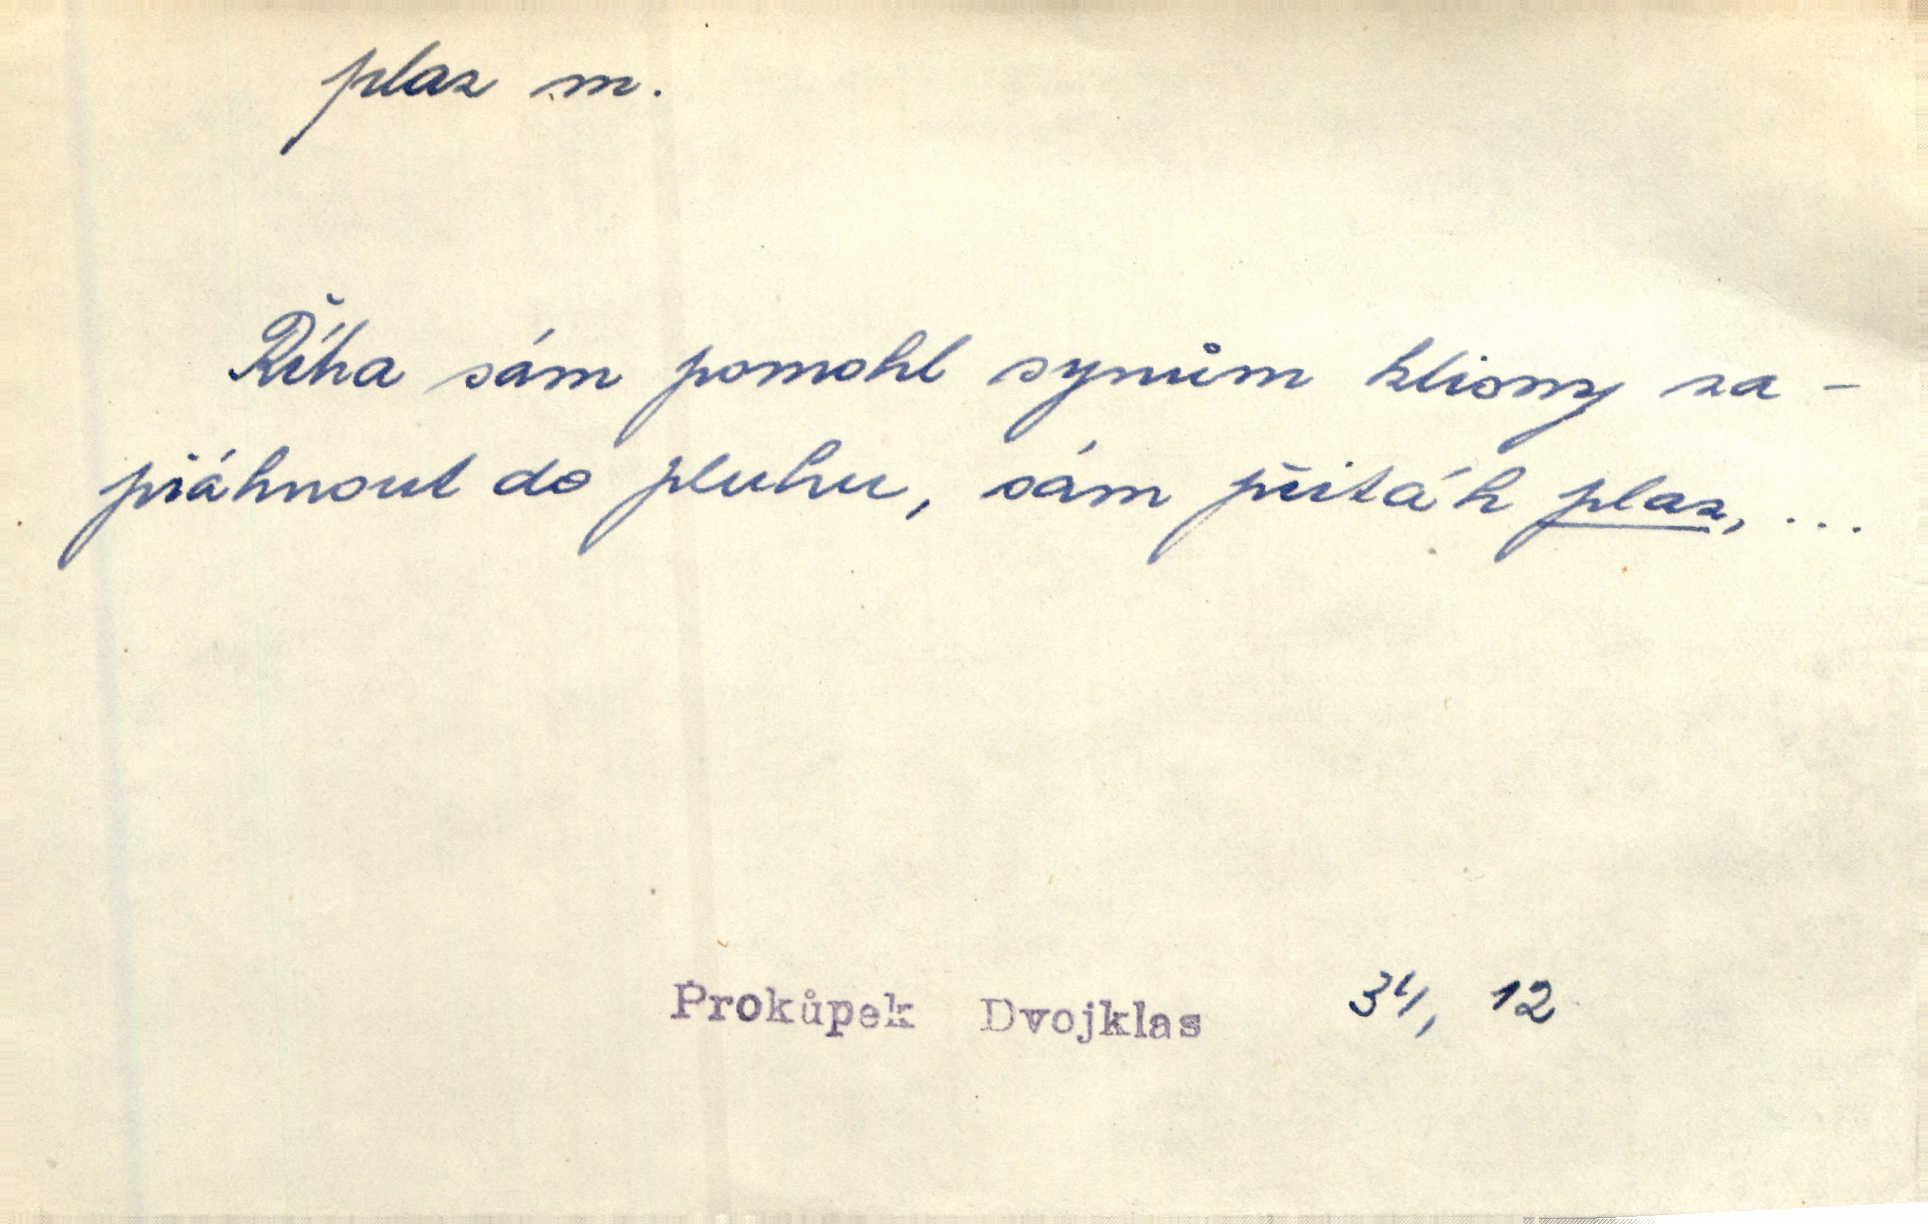 plaz m.
Říha sám pomohl synům klisny za-
přáhnout do pluhu, sám přitáh plaz, ...
Prokůpek Dvojklas 34, 12